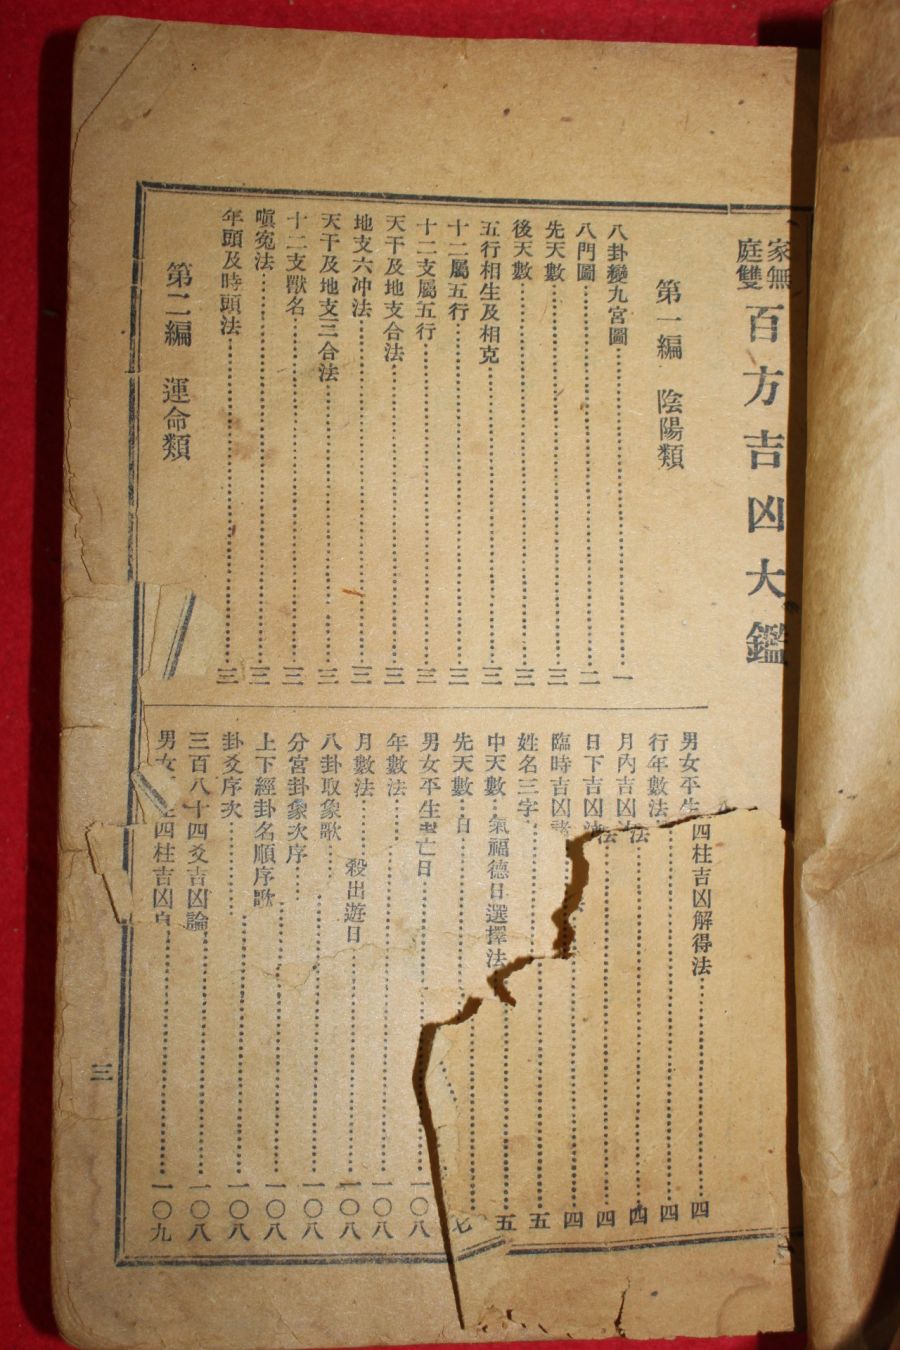 家庭無雙 百方吉凶大鑑
第一編 陰陽類
八卦變九宮圖……一
八門圖……二
先天數……三
後天數……三
五行相生及相克……三
十二屬五行……三
十二支屬五行……三
天干及地支合法……三
地支六冲法……三
天干及地支三合法……三
十二支獸名……三
嗔寃法……三
年頭及時頭法……三
第二編 運命類
男女平生四柱吉凶解得法……四
行年數法……四
月內吉凶法……四
日下吉凶法……四
臨時吉凶……四
姓名三字……五
中天數……氣福德日選擇法……五
先天數……日……七
男女平生……亡日……一〇八
年數法……一〇八
月數法……殺出遊日……一〇八
八卦取象歌……一〇八
分宮卦象次序……一〇八
上下經卦名順序歌……一〇八
卦爻序次……一〇八
三百八十四爻吉凶論……一〇八
男女 四柱吉凶……一〇九
三